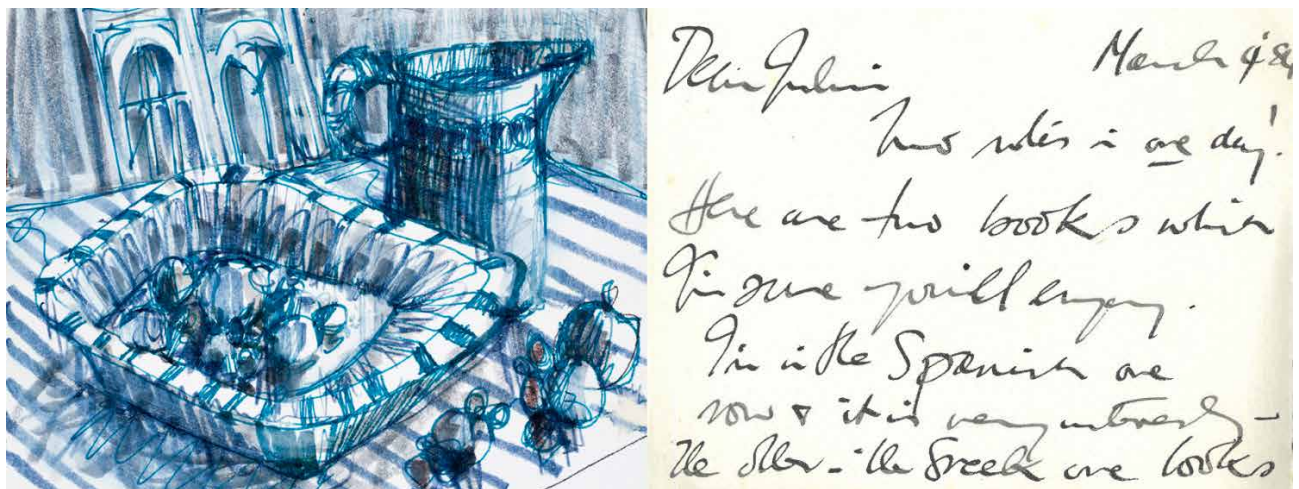 Dear Julian
March 9' 84
Two notes in one day!
Here are two books which
I'm sure you'll enjoy.
I'm in the Spanish one
now & it is very interesting –
the other – the Greek one looks